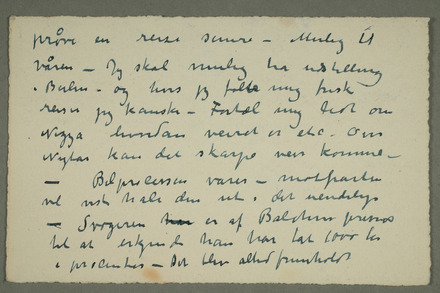 prøve en reise senere – Mulig til
våren – Jeg skal mulig ha udstilling
i Berlin – og hvis jeg føler mig frisk
reiser jeg kanske – Fortæl mig lidt om
Nizza hvordan veiret er etc. Om
Nytår kan det skarpe veir komme –
– Bilprocessen varer – motparten
vil nok hale den ut i det uendelige
– Svogeren er af Balchens presset
til at erkjende han har tat 1000 kr
i procenter – Det blev altid fremholdt